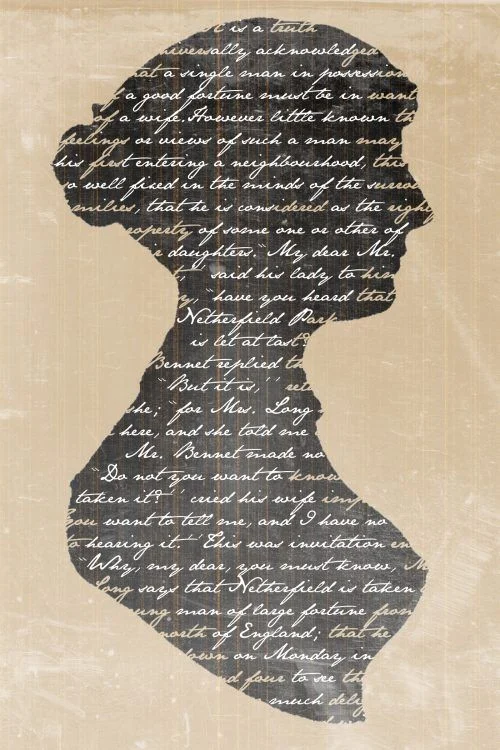 t is a truth
niversally acknowledged
at a single man in possession
f a good fortune must be in want
of a wife. However little known th
feelings or views of such a man may
his first entering a neighbourhood, this
so well fixed in the minds of the surrou
milies, that he is considered as the right
roperty of some one or other of
r daughters. "My dear Mr.
t," said his lady to him
y, "have you heard that
Netherfield Park
is let at last?
Bennet replied th
"But it is," ret
she; "for Mrs. Long
here, and she told me
Mr. Bennet made no
"Do not you want to know
taken it?" cried his wife imp
you want to tell me, and I have no
to hearing it." This was invitation en
Why, my dear, you must know, M
Long says that Netherfield is taken
ung man of large fortune from
north of England; that he
own on Monday in
nd four to see th
much deli